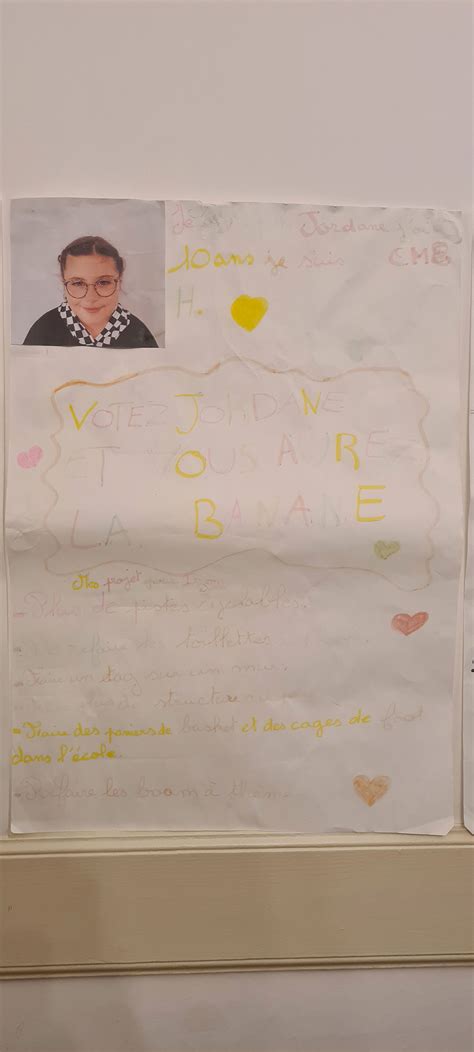 Je Jordane j'ai
10 ans je suis CM2
H.
VOTEZ JORDANE
ET VOUS AUREZ
LA BANANE
Mes projet pour
- Plus de pistes cyclables.
- refaire des toillettes
- Faire un tag sur un mur.
- plus de structure
- Faire des paniers de basket et des cages de foot
dans l'école.
- Refaire les boom à thème